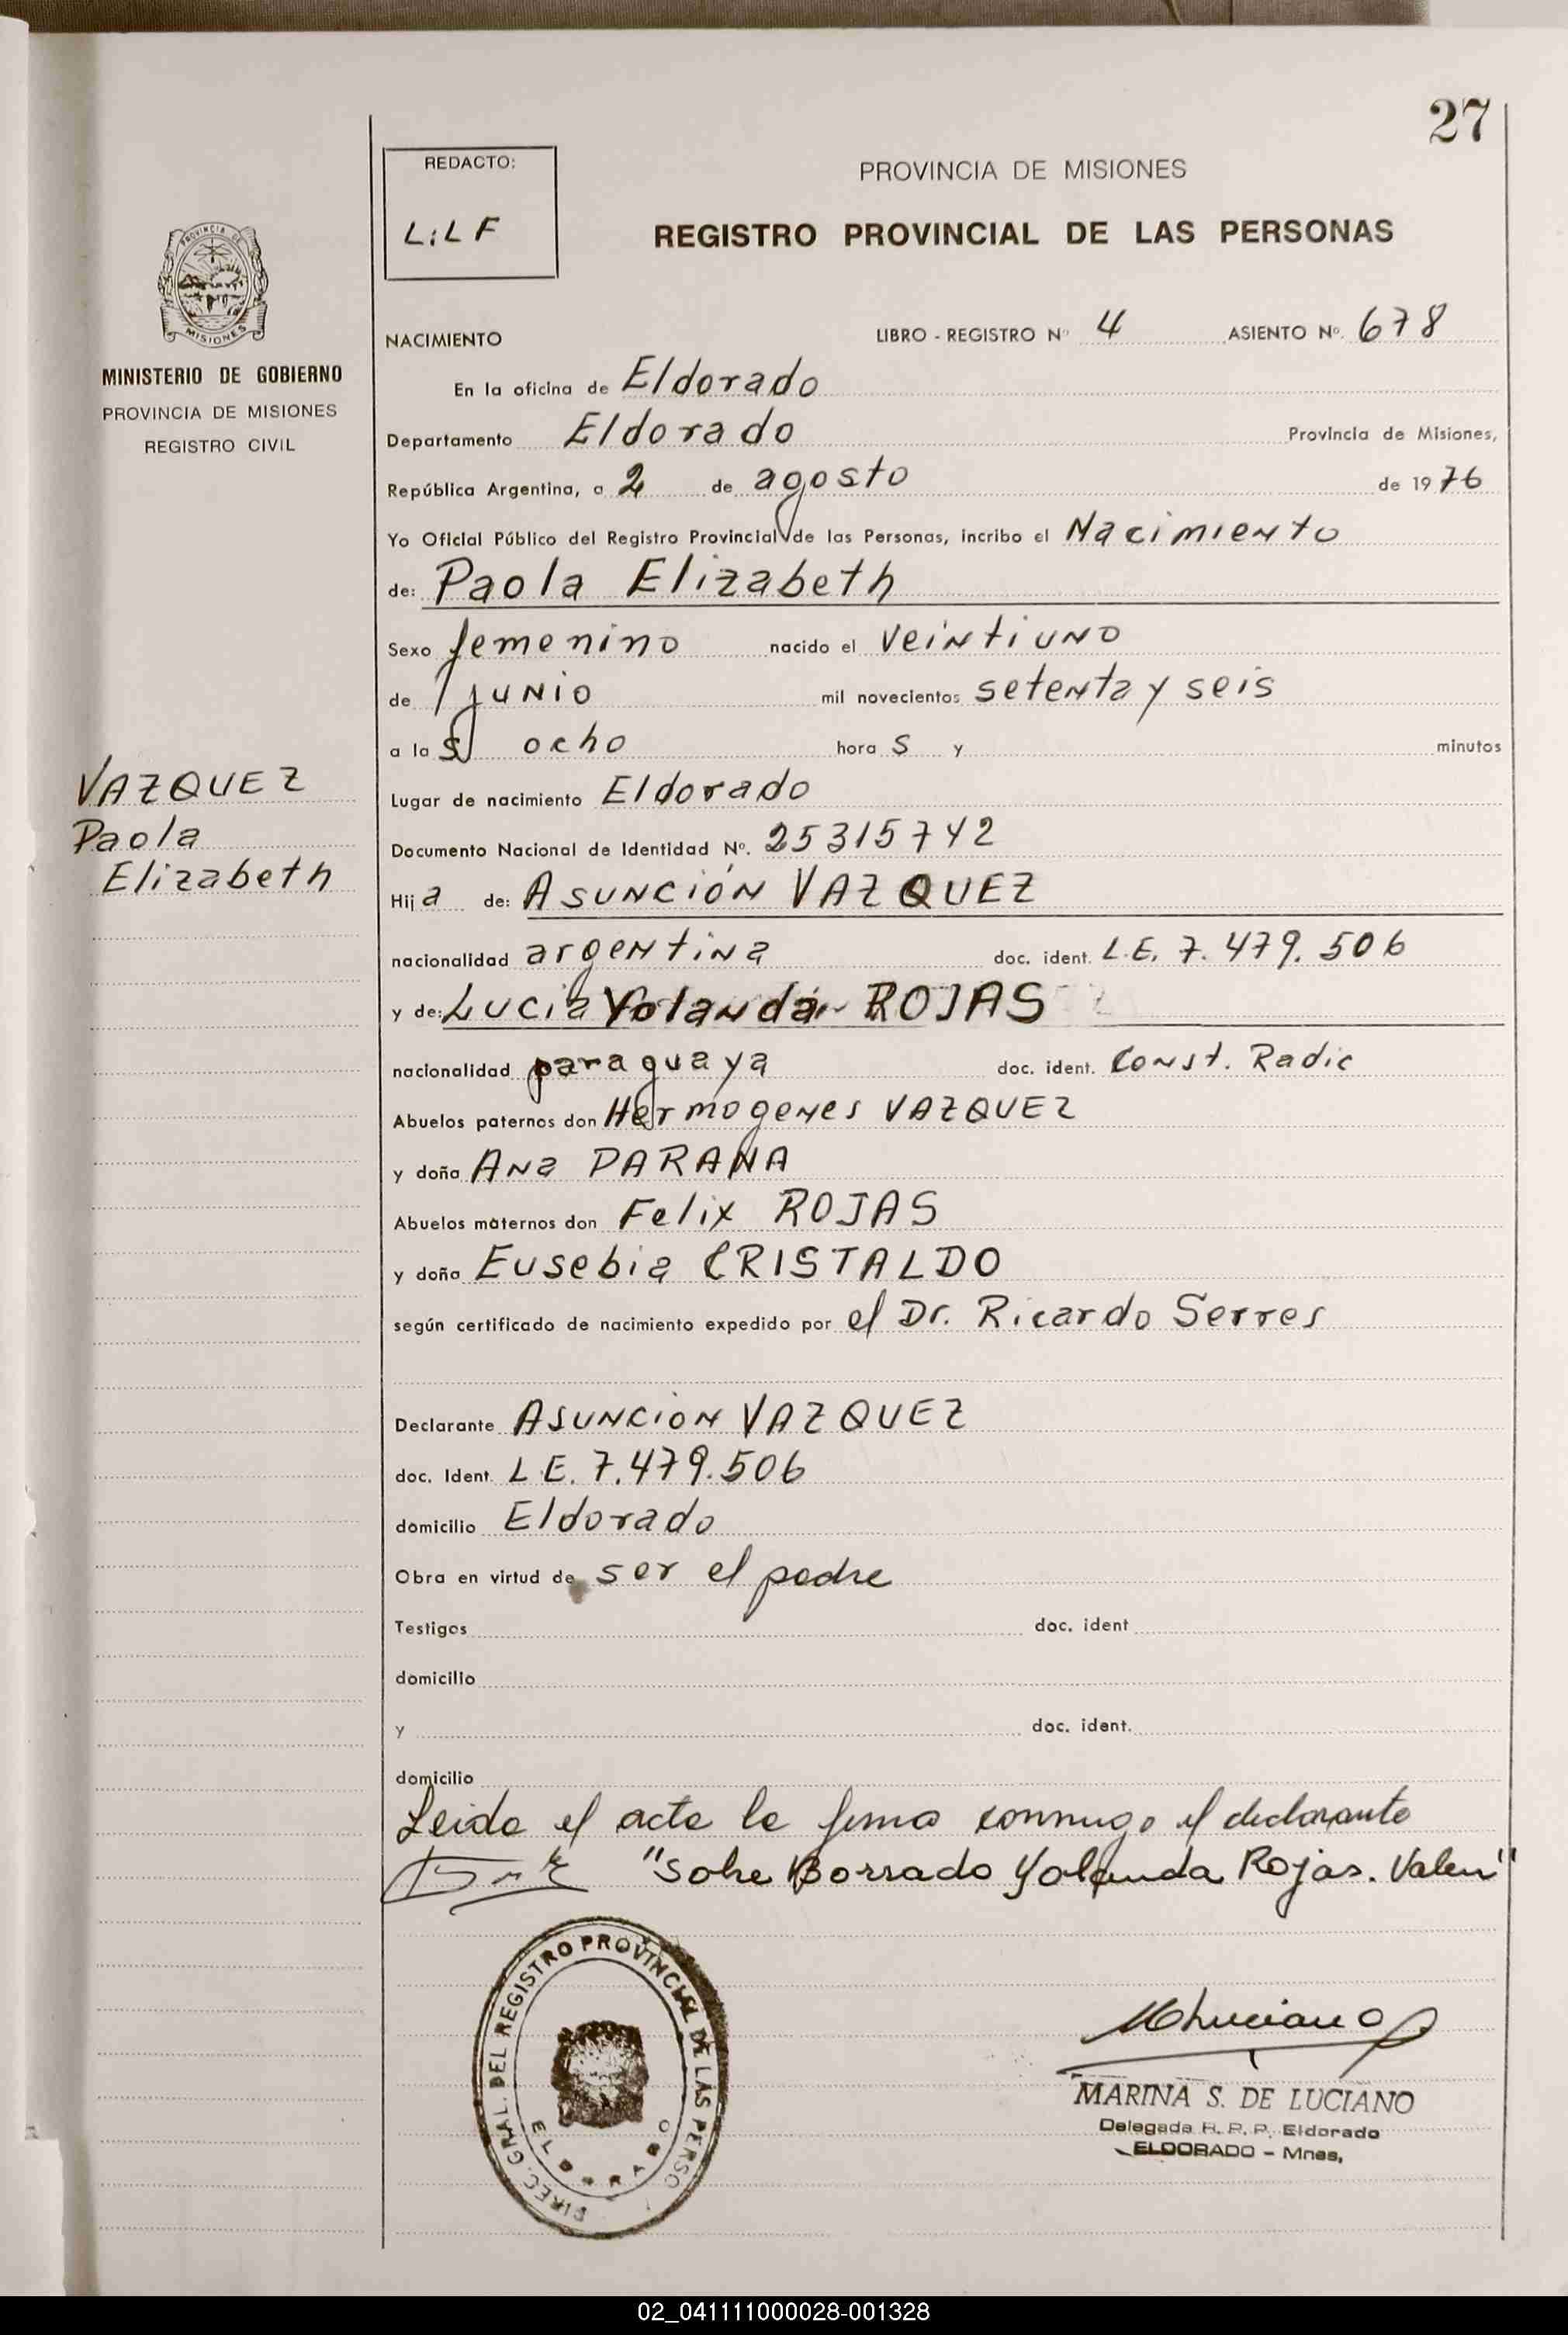 27
REDACTO:
L.L F
PROVINCIA DE MISIONES
REGISTRO PROVINCIAL DE LAS PERSONAS
PROVINCIA DE
MISIONES
MINISTERIO DE GOBIERNO
PROVINCIA DE MISIONES
REGISTRO CIVIL
NACIMIENTO LIBRO - REGISTRO Nº 4 ASIENTO Nº. 678
En la oficina de Eldorado
Departamento Eldorado Provincia de Misiones,
República Argentina, a 2 de agosto de 1976
Yo Oficial Público del Registro Provincial de las Personas, incribo el Nacimiento
de: Paola Elizabeth
Sexo femenino nacido el veintiuno
de junio mil novecientos setenta y seis
a las ocho horas y minutos
VAZQUEZ
Paola
Elizabeth
Lugar de nacimiento Eldorado
Documento Nacional de Identidad Nº. 25315742
Hija de: ASUNCIÓN VAZQUEZ
nacionalidad argentina doc. ident. L.E. 7.479.506
y de: Lucia Yolanda ROJAS
nacionalidad paraguaya doc. ident. Const. Radic
Abuelos paternos don Hermogenes VAZQUEZ
y doña Ana PARANA
Abuelos maternos don Felix ROJAS
y doña Eusebia CRISTALDO
según certificado de nacimiento expedido por el Dr. Ricardo Serres
Declarante ASUNCION VAZQUEZ
doc. Ident. L.E. 7.479.506
domicilio Eldorado
Obra en virtud de ser el padre
Testigos doc. ident
domicilio
y doc. ident.
domicilio
Leida el acta la firma conmigo el declarante
"Sobre Borrado Yolanda Rojas. Valen"
DIREC. GRAL. DEL REGISTRO PROVINCIAL DE LAS PERSO
ELDORADO
MARINA S. DE LUCIANO
Delegada R. P. P. Eldorado
ELDORADO - Mnes,
02_041111000028-001328